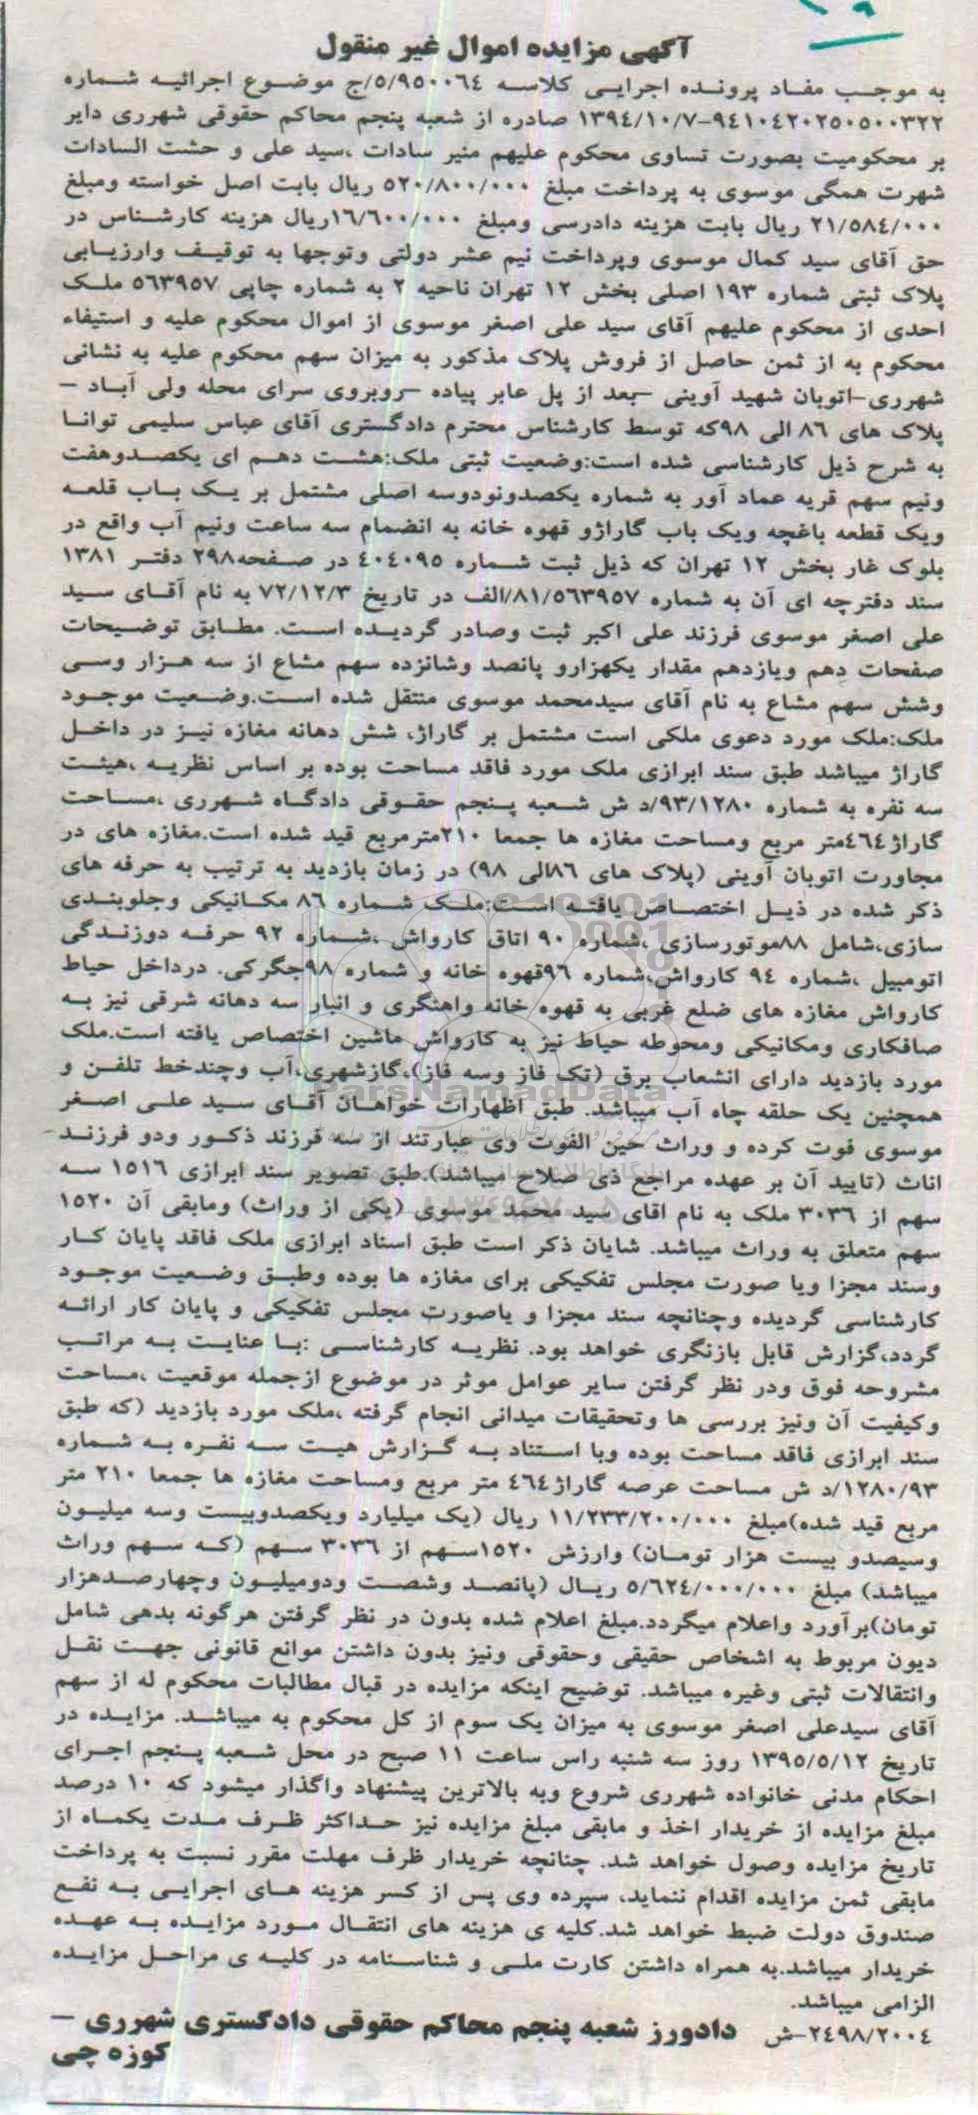 آگهی مزایده اموال غیر منقول
به موجب مفاد پرونده اجرایی کلاسه ۵/۹۵۰۰۶۴/ج موضوع اجرائیه شماره
۹۴۱۰۴۲۰۲۵۰۵۰۰۳۲۲-۱۳۹۴/۱۰/۷ صادره از شعبه پنجم محاکم حقوقی شهرری دایر
بر محکومیت بصورت تساوی محکوم علیهم منیر سادات ،سید علی و حشت السادات
شهرت همگی موسوی به پرداخت مبلغ ۵۲۰/۸۰۰/۰۰۰ ریال بابت اصل خواسته ومبلغ
۲۱/۵۸۴/۰۰۰ ریال بابت هزینه دادرسی ومبلغ ۱۶/۶۰۰/۰۰۰ریال هزینه کارشناس در
حق آقای سید کمال موسوی وپرداخت نیم عشر دولتی وتوجها به توقیف وارزیابی
پلاک ثبتی شماره ۱۹۳ اصلی بخش ۱۲ تهران ناحیه ۲ به شماره چاپی ۵۶۳۹۵۷ ملک
احدی از محکوم علیهم آقای سید علی اصغر موسوی از اموال محکوم علیه و استیفاء
محکوم به از ثمن حاصل از فروش پلاک مذکور به میزان سهم محکوم علیه به نشانی
شهرری-اتوبان شهید آوینی -بعد از پل عابر پیاده -روبروی سرای محله ولی آباد -
پلاک های ۸۶ الی ۹۸که توسط کارشناس محترم دادگستری آقای عباس سلیمی توانا
به شرح ذیل کارشناسی شده است:وضعیت ثبتی ملک:هشت دهم ای یکصدوهفت
ونیم سهم قریه عماد آور به شماره یکصدونودوسه اصلی مشتمل بر یک باب قلعه
ویک قطعه باغچه ویک باب گاراژو قهوه خانه به انضمام سه ساعت ونیم آب واقع در
بلوک غار بخش ۱۲ تهران که ذیل ثبت شماره ۴۰۴۰۹۵ در صفحه۲۹۸ دفتر ۱۳۸۱
سند دفترچه ای آن به شماره ۸۱/۵۶۳۹۵۷/الف در تاریخ ۷۲/۱۲/۳ به نام آقای سید
علی اصغر موسوی فرزند علی اکبر ثبت وصادر گردیده است. مطابق توضیحات
صفحات دهم ویازدهم مقدار یکهزارو پانصد وشانزده سهم مشاع از سه هزار وسی
وشش سهم مشاع به نام آقای سیدمحمد موسوی منتقل شده است.وضعیت موجود
ملک:ملک مورد دعوی ملکی است مشتمل بر گاراژ، شش دهانه مغازه نیز در داخل
گاراژ میباشد طبق سند ابرازی ملک مورد فاقد مساحت بوده بر اساس نظریه ،هیئت
سه نفره به شماره ۹۳/۱۲۸۰/د ش شعبه پنجم حقوقی دادگاه شهرری ،مساحت
گاراژ۴۶۴متر مربع ومساحت مغازه ها جمعا ۲۱۰مترمربع قید شده است.مغازه های در
مجاورت اتوبان آوینی (پلاک های ۸۶الی ۹۸) در زمان بازدید به ترتیب به حرفه های
ذکر شده در ذیل اختصاص یافته است:ملک شماره ۸۶ مکانیکی وجلوبندی
سازی،شامل ۸۸موتورسازی ،شماره ۹۰ اتاق کارواش ،شماره ۹۲ حرفه دوزندگی
اتومبیل ،شماره ۹۴ کارواش،شماره ۹۶قهوه خانه و شماره ۹۸جگرکی. درداخل حیاط
کارواش مغازه های ضلع غربی به قهوه خانه واهنگری و انبار سه دهانه شرقی نیز به
صافکاری ومکانیکی ومحوطه حیاط نیز به کارواش ماشین اختصاص یافته است.ملک
مورد بازدید دارای انشعاب برق (تک فاز وسه فاز)،گازشهری،آب وچندخط تلفن و
همچنین یک حلقه چاه آب میباشد. طبق اظهارات خواهان آقای سید علی اصغر
موسوی فوت کرده و وراث حین الفوت وی عبارتند از سه فرزند ذکور ودو فرزند
اناث (تایید آن بر عهده مراجع ذی صلاح میباشد).طبق تصویر سند ابرازی ۱۵۱۶ سه
سهم از ۳۰۳۶ ملک به نام اقای سید محمد موسوی (یکی از وراث) ومابقی آن ۱۵۲۰
سهم متعلق به وراث میباشد. شایان ذکر است طبق اسناد ابرازی ملک فاقد پایان کار
وسند مجزا ویا صورت مجلس تفکیکی برای مغازه ها بوده وطبق وضعیت موجود
کارشناسی گردیده وچنانچه سند مجزا و یاصورت مجلس تفکیکی و پایان کار ارائه
گردد،گزارش قابل بازنگری خواهد بود. نظریه کارشناسی :با عنایت به مراتب
مشروحه فوق ودر نظر گرفتن سایر عوامل موثر در موضوع ازجمله موقعیت ،مساحت
وکیفیت آن ونیز بررسی ها وتحقیقات میدانی انجام گرفته ،ملک مورد بازدید (که طبق
سند ابرازی فاقد مساحت بوده وبا استناد به گزارش هیت سه نفره به شماره
۱۲۸۰/۹۳/د ش مساحت عرصه گاراژ۴۶۴ متر مربع ومساحت مغازه ها جمعا ۲۱۰ متر
مربع قید شده)مبلغ ۱۱/۲۳۳/۲۰۰/۰۰۰ ریال (یک میلیارد ویکصدوبیست وسه میلیون
وسیصدو بیست هزار تومان) وارزش ۱۵۲۰سهم از ۳۰۳۶ سهم (که سهم وراث
میباشد) مبلغ ۵/۶۲۴/۰۰۰/۰۰۰ ریال (پانصد وشصت ودومیلیون وچهارصدهزار
تومان)برآورد واعلام میگردد.مبلغ اعلام شده بدون در نظر گرفتن هرگونه بدهی شامل
دیون مربوط به اشخاص حقیقی وحقوقی ونیز بدون داشتن موانع قانونی جهت نقل
وانتقالات ثبتی وغیره میباشد. توضیح اینکه مزایده در قبال مطالبات محکوم له از سهم
آقای سیدعلی اصغر موسوی به میزان یک سوم از کل محکوم به میباشد. مزایده در
تاریخ ۱۳۹۵/۵/۱۲ روز سه شنبه راس ساعت ۱۱ صبح در محل شعبه پنجم اجرای
احکام مدنی خانواده شهرری شروع وبه بالاترین پیشنهاد واگذار میشود که ۱۰ درصد
مبلغ مزایده از خریدار اخذ و مابقی مبلغ مزایده نیز حداکثر ظرف مدت یکماه از
تاریخ مزایده وصول خواهد شد. چنانچه خریدار ظرف مهلت مقرر نسبت به پرداخت
مابقی ثمن مزایده اقدام ننماید، سپرده وی پس از کسر هزینه های اجرایی به نفع
صندوق دولت ضبط خواهد شد.کلیه ی هزینه های انتقال مورد مزایده به عهده
خریدار میباشد.به همراه داشتن کارت ملی و شناسنامه در کلیه ی مراحل مزایده
الزامی میباشد.
۲۴۹۸/۲۰۰۴-ش دادورز شعبه پنجم محاکم حقوقی دادگستری شهرری -
کوزه چی
ParsNamadData